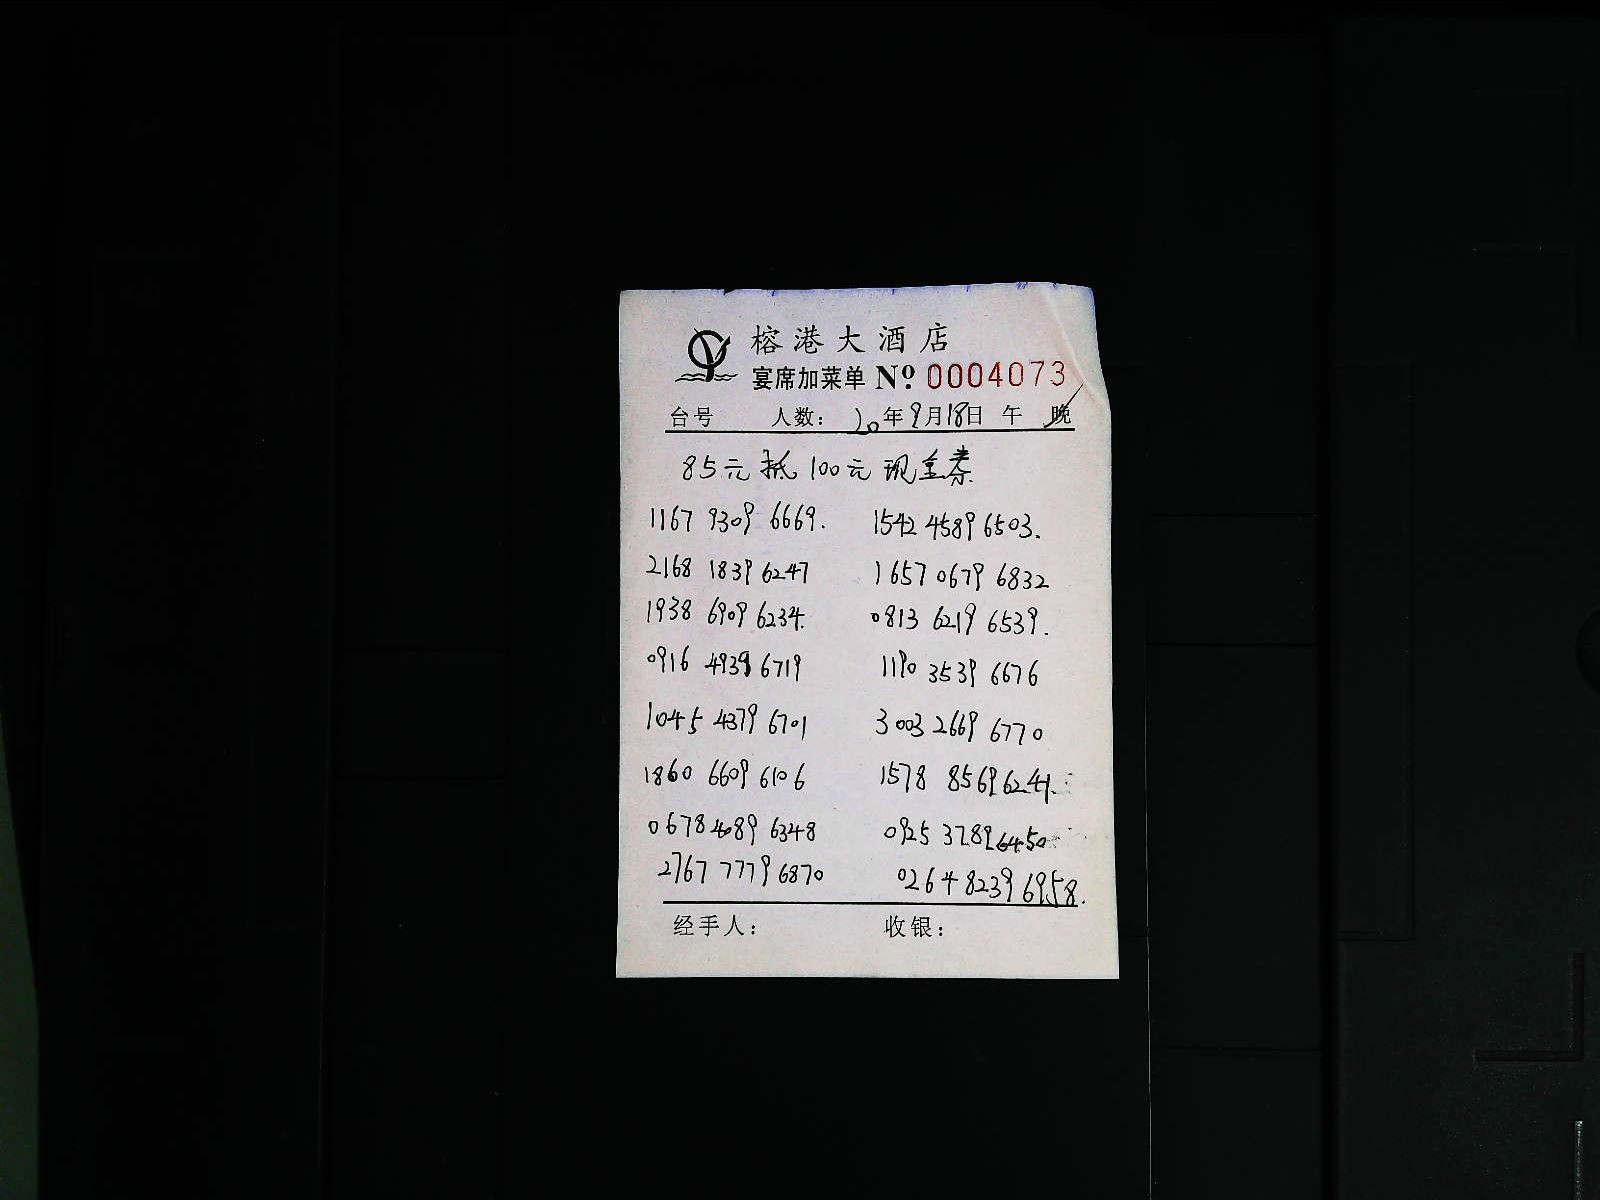 榕港大酒店
宴席加菜单 Nº 0004073
台号 人数: 20年9月18日 午 晚
85元抵100元现金券
1167 9309 6669. 1542 4589 6503.
2168 1839 6247 1657 0679 6832
1938 6909 6234. 0813 6219 6539.
0916 4939 6719 1190 3539 6676
1045 4379 6701 3003 2669 6770
1860 6609 6106 1578 8569 6241.
0678 4089 6348 0925 3789 6450
2767 7779 6870 0264 8239 6958.
经手人: 收银: